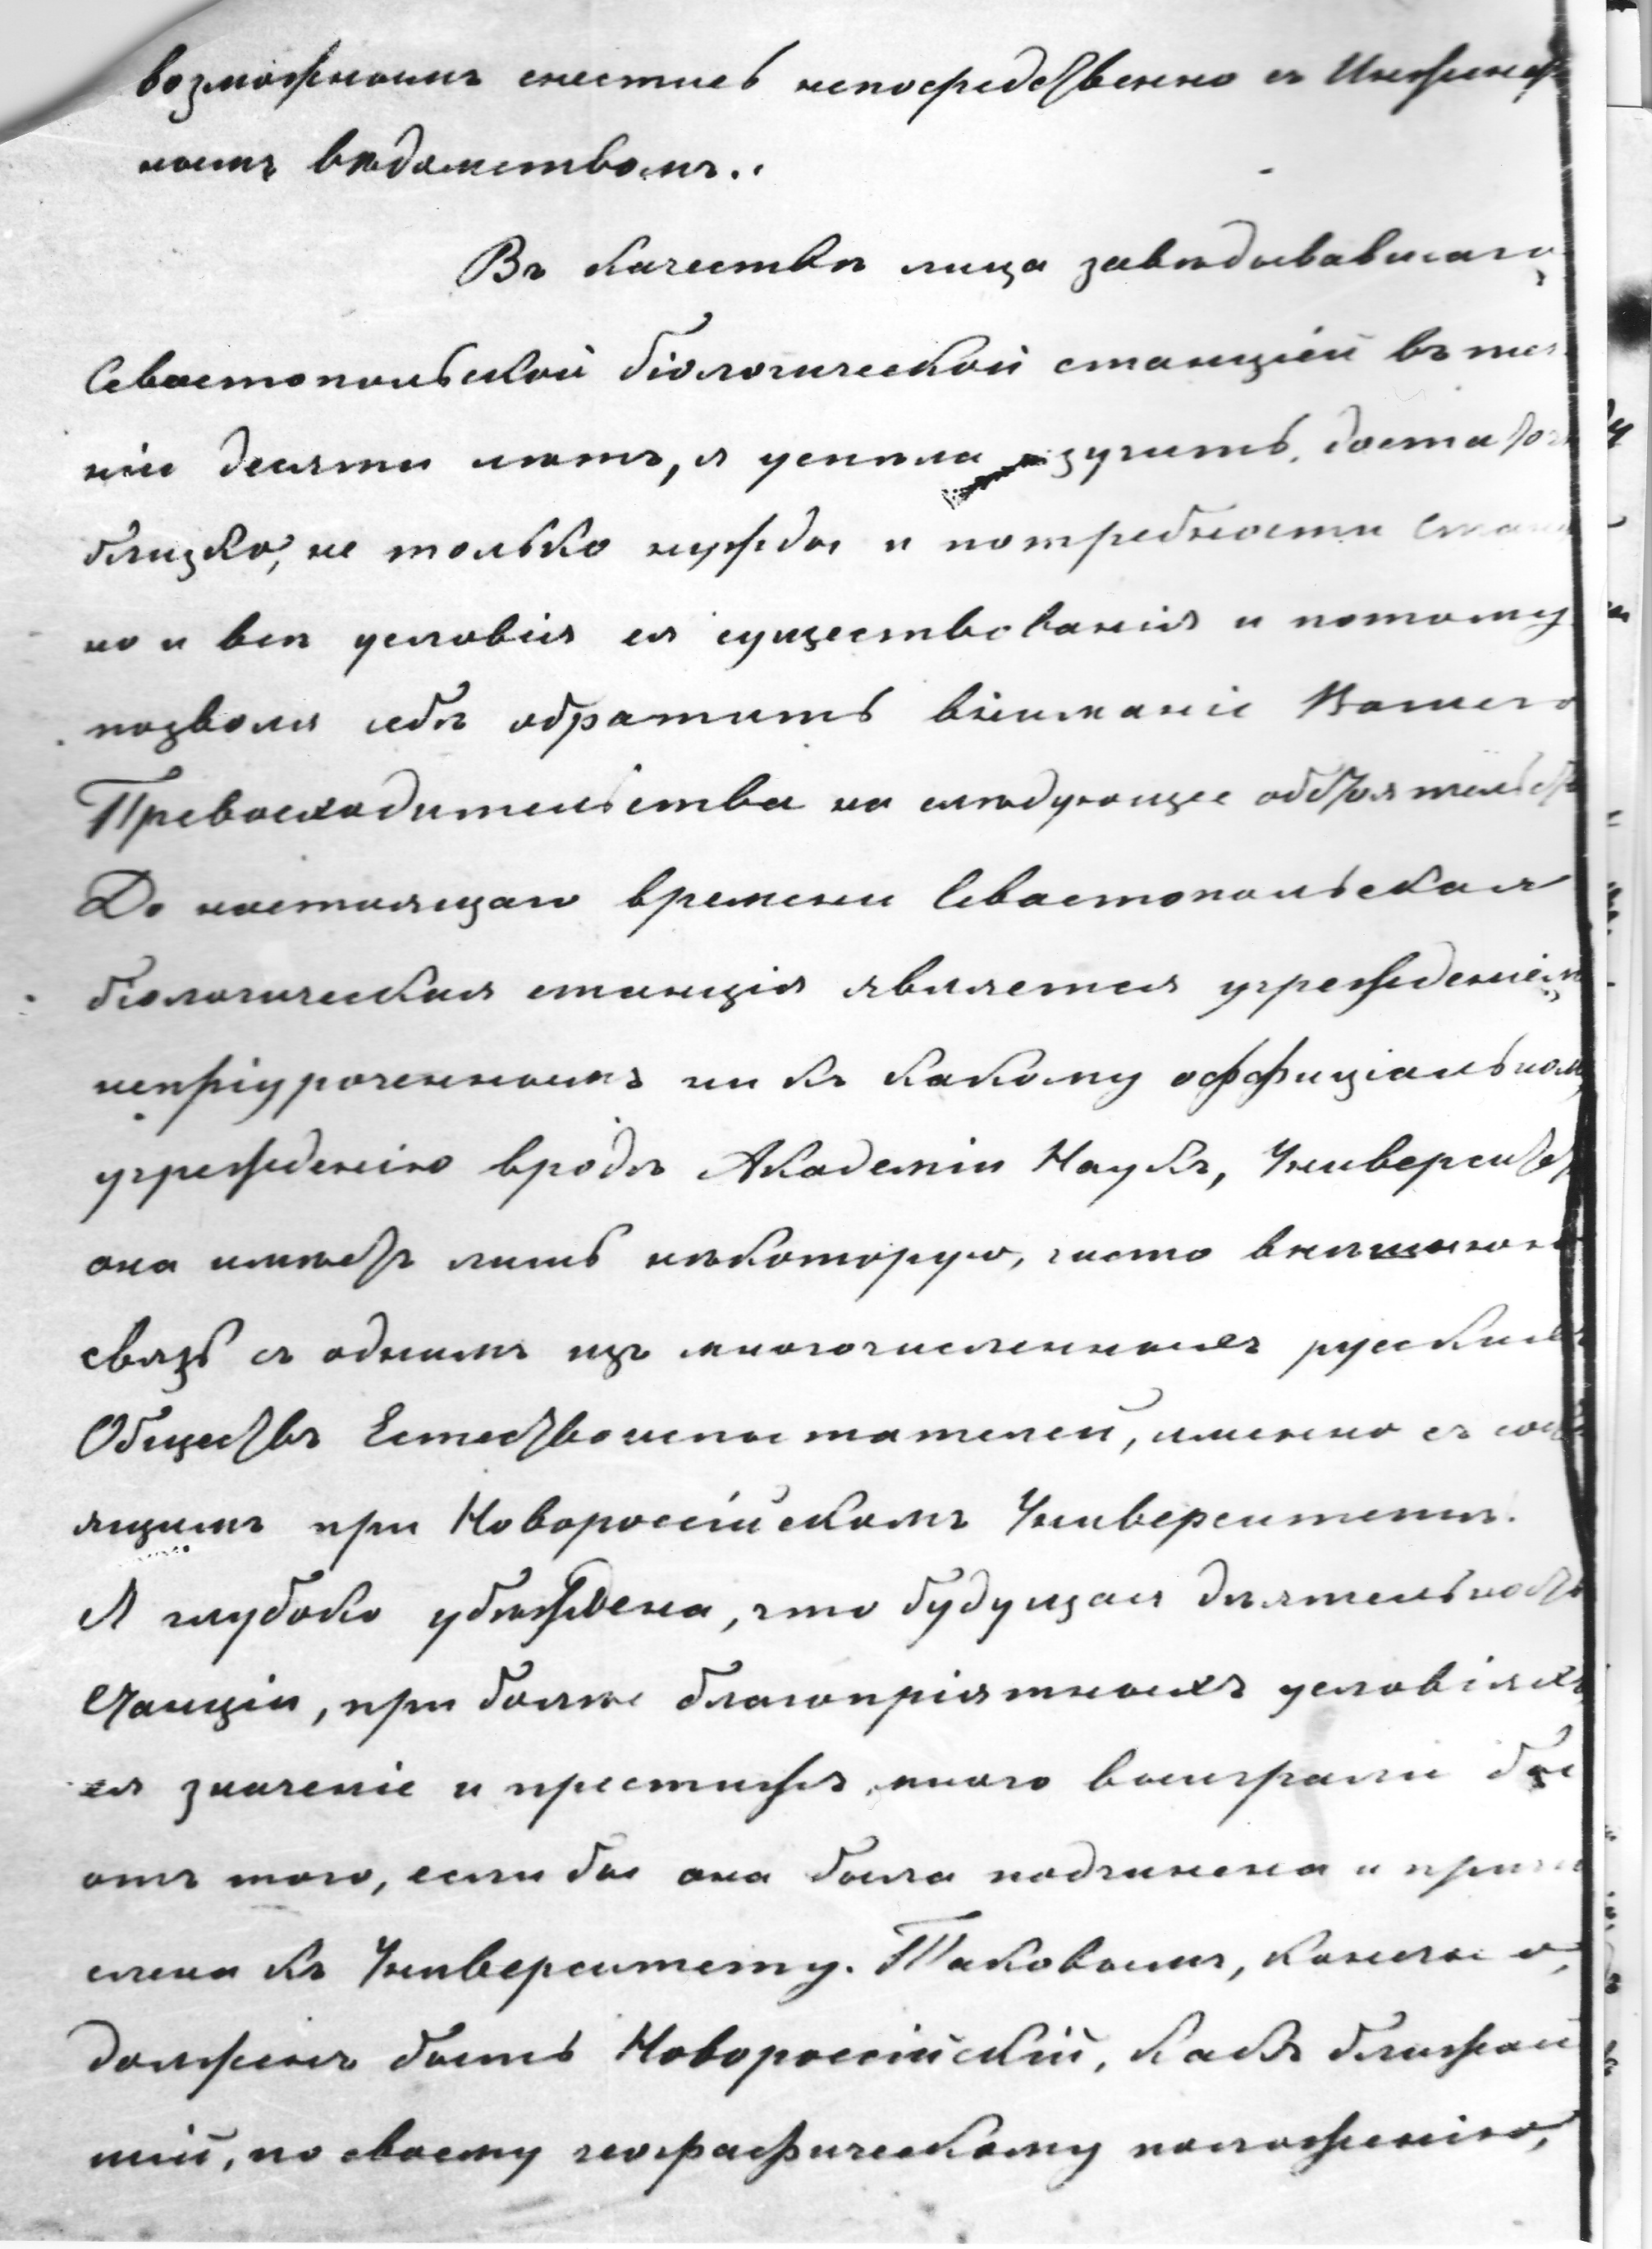 возможнымъ снестись непосредственно съ Инженер
нымъ вѣдомствомъ..
Въ качествѣ лица завѣдывавшаго
Севастопольской біологической станціей въ тече
ніи десяти лѣтъ, я успѣла изучить, достаточн
близко, не только нужды и потребности Стан
но и всѣ условія ея существованія и потому
позволя себѣ обратить вниманіе Вашего
Превосходительства на слѣдующее обстоятельств
До настоящаго времени Севастопольская
біологическая станція является учрежденіемъ
непріуроченнымъ ни къ какому оффиціальному
учрежденію вродѣ Академіи Наукъ, Университет
она имѣетъ лишь нѣкоторую, чисто внѣшнюю
связь съ однимъ изъ многочисленныхъ русскихъ
Обществъ Естествоиспытателей, именно съ состо
ящимъ при Новороссійскомъ Университетѣ.
Я глубоко убѣждена, что будущая дѣятельность
Станціи, при болѣе благопріятныхъ условіяхъ
ея значеніе и престижъ, много выиграли бы
отъ того, если бы она была подчинена и причи
слена къ Университету. Таковымъ, конечно,
долженъ быть Новороссійскій, какъ ближай
шій, по своему географическому положенію,